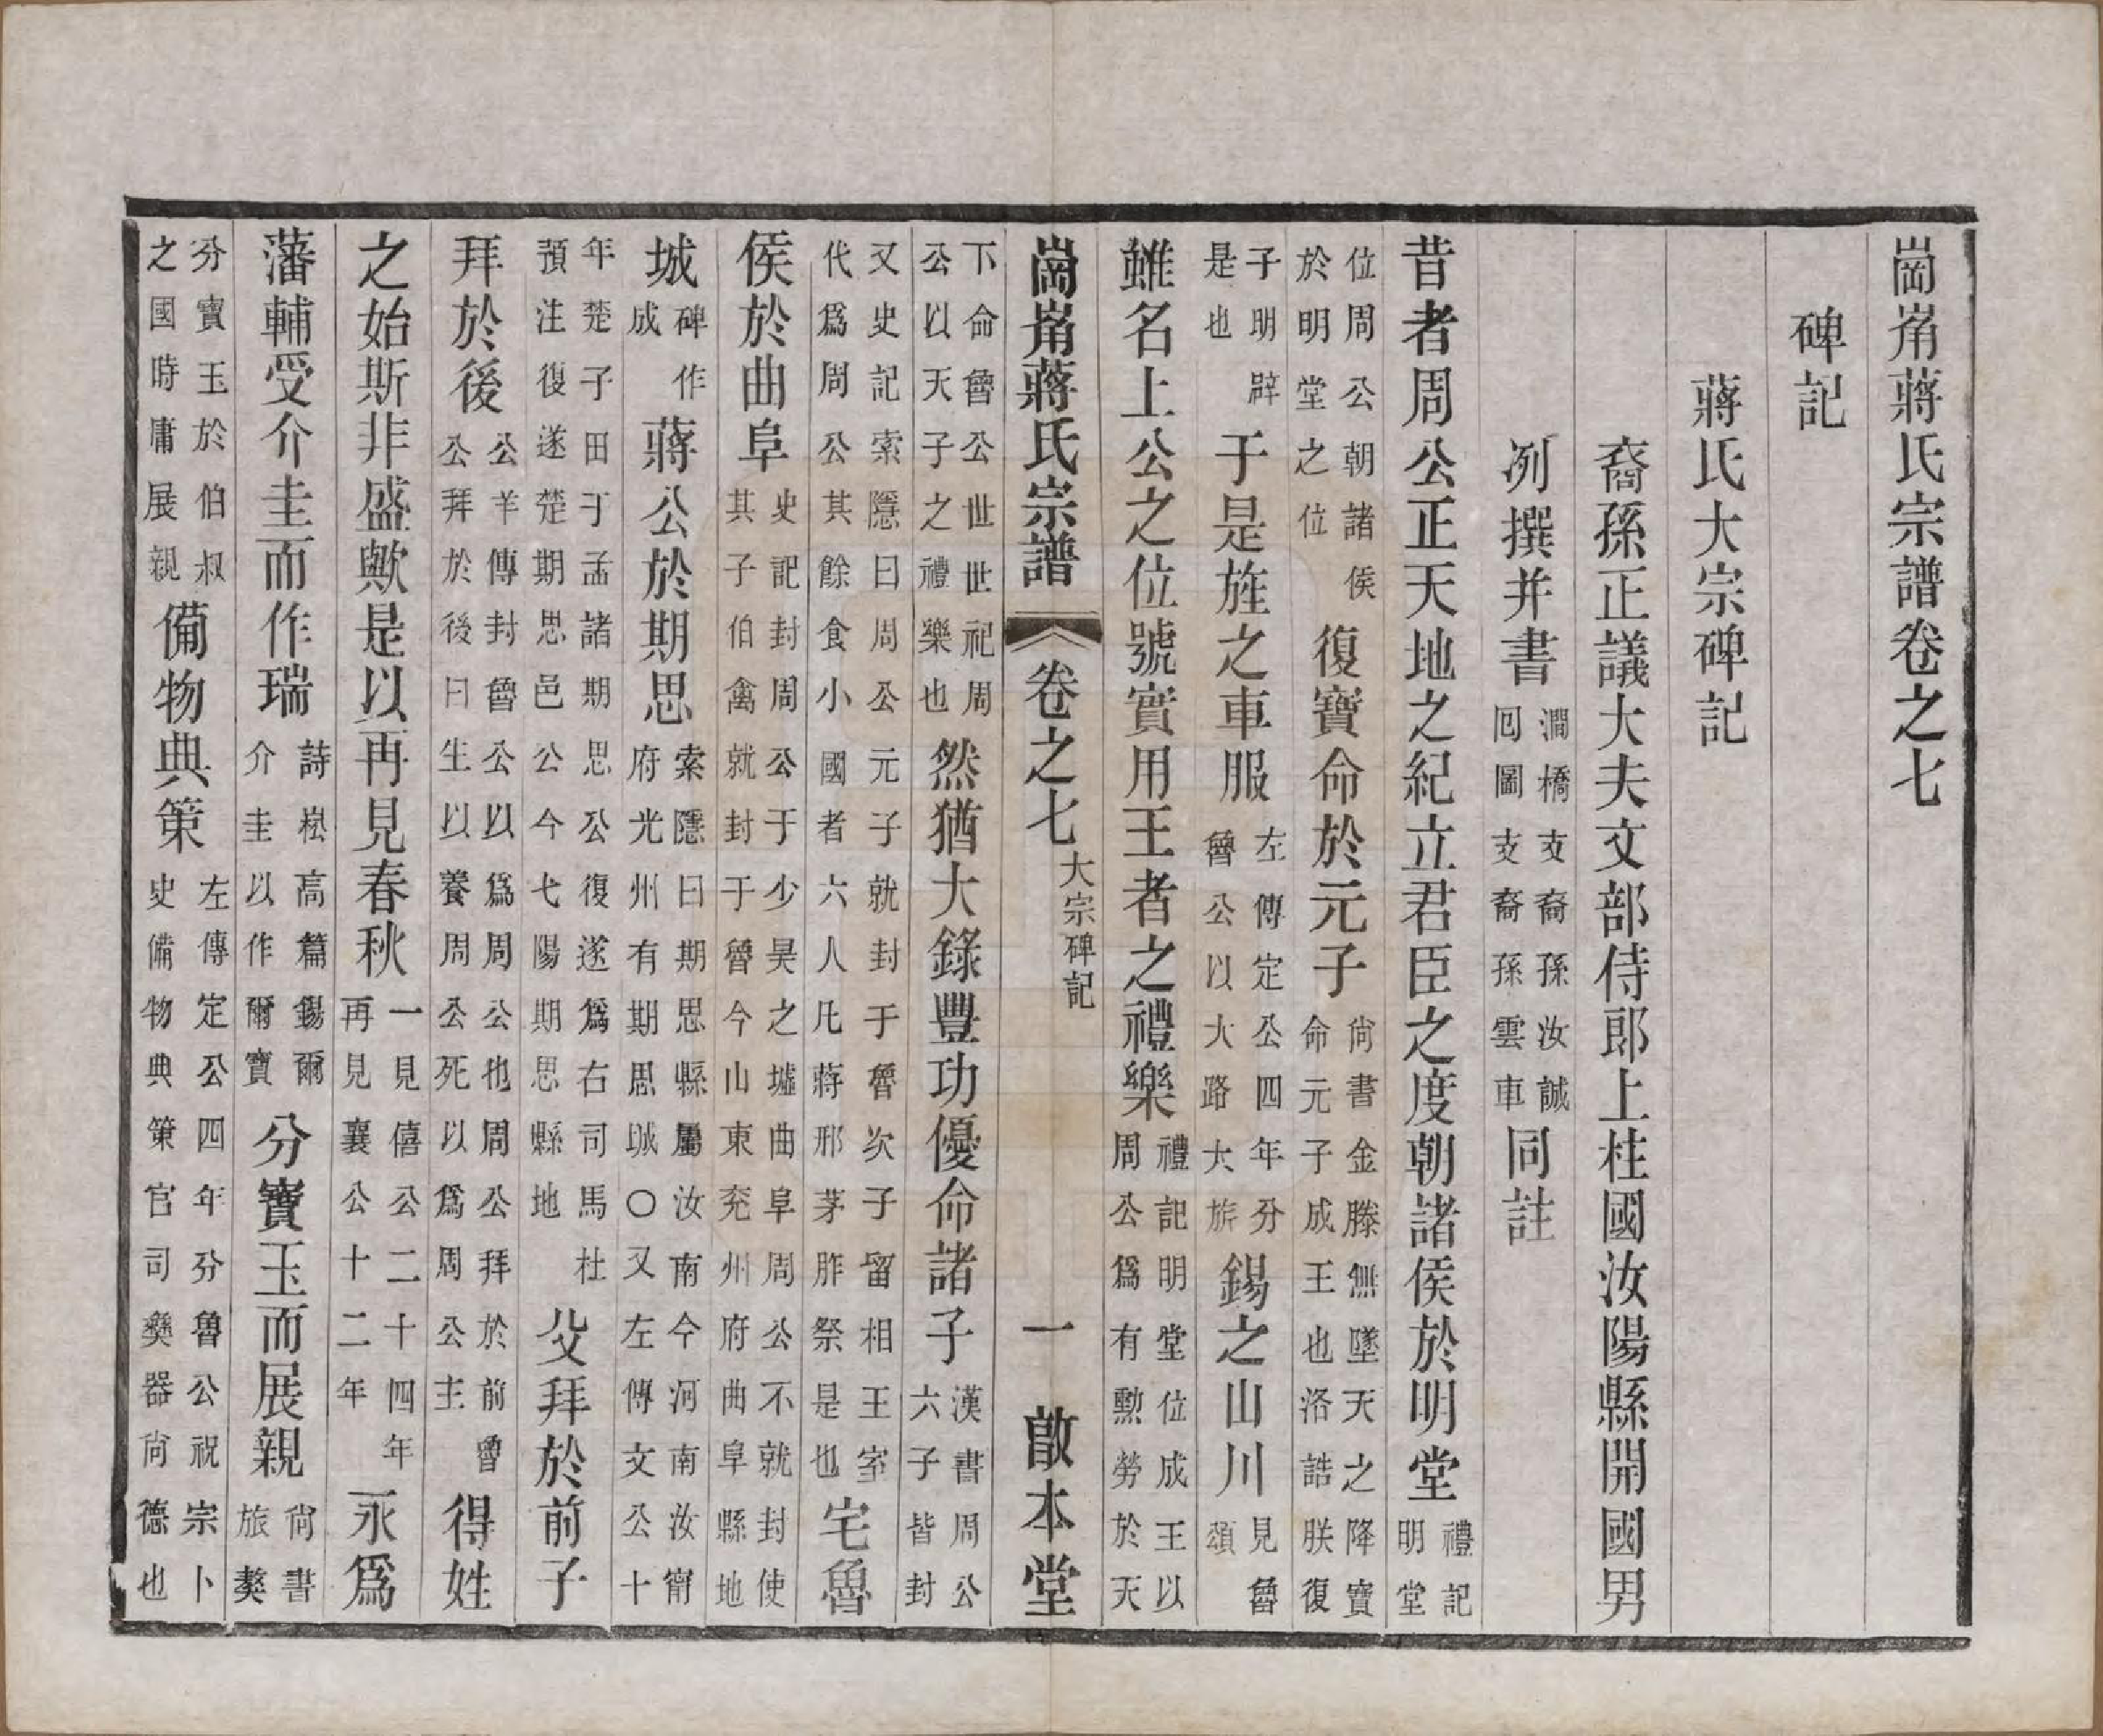 崗角蔣氏宗譜卷之七
碑記
蔣氏大宗碑記
裔孫正議大夫文部侍郎上柱國汝陽縣開國男
冽撰并書澗橋支裔孫汝誠囘圖支裔孫雲車同註
昔者周公正天地之紀立君臣之度朝諸侯於明堂禮記明堂
位周公朝諸侯於明堂之位復寶命於元子尚書金滕無墜天之降寶命元子成王也洛誥朕復
子明辟是也于是旌之車服左傳定公四年分魯公以大路大旂錫之山川見魯頌
雖名上公之位號實用王者之禮樂禮記明堂位成王以周公爲有勲勞於天
崗角蔣氏宗譜 卷之七 大宗碑記 一 啟本堂
下命魯公世世祀周公以天子之禮樂也然猶大錄豐功優命諸子漢書周公六子皆封
又史記索隱曰周公元子就封于魯次子留相王室代爲周公其餘食小國者六人凡蔣邢茅胙祭是也宅魯
侯於曲阜史記封周公于少昊之墟曲阜周公不就封使其子伯禽就封于魯今山東兖州府曲阜縣地
城碑作成蔣公於期思索隱曰期思縣屬汝南今河南汝甯府光州有期思城〇又左傳文公十
年楚子田于孟諸期思公復遂爲右司馬杜預注復遂楚期思邑公今弋陽期思縣地父拜於前子
拜於後公羊傳封魯公以爲周公也周公拜於前魯公拜於後曰生以養周公死以爲周公主得姓
之始斯非盛歟是以再見春秋一見僖公二十四年再見襄公十二年永爲
藩輔受介圭而作瑞詩崧高篇錫爾介圭以作爾寶分寶玉而展親尚書旅獒
分寶玉於伯叔之國時庸展親備物典策左傳定公四年分魯公祝宗卜史備物典策官司彝器尚德也